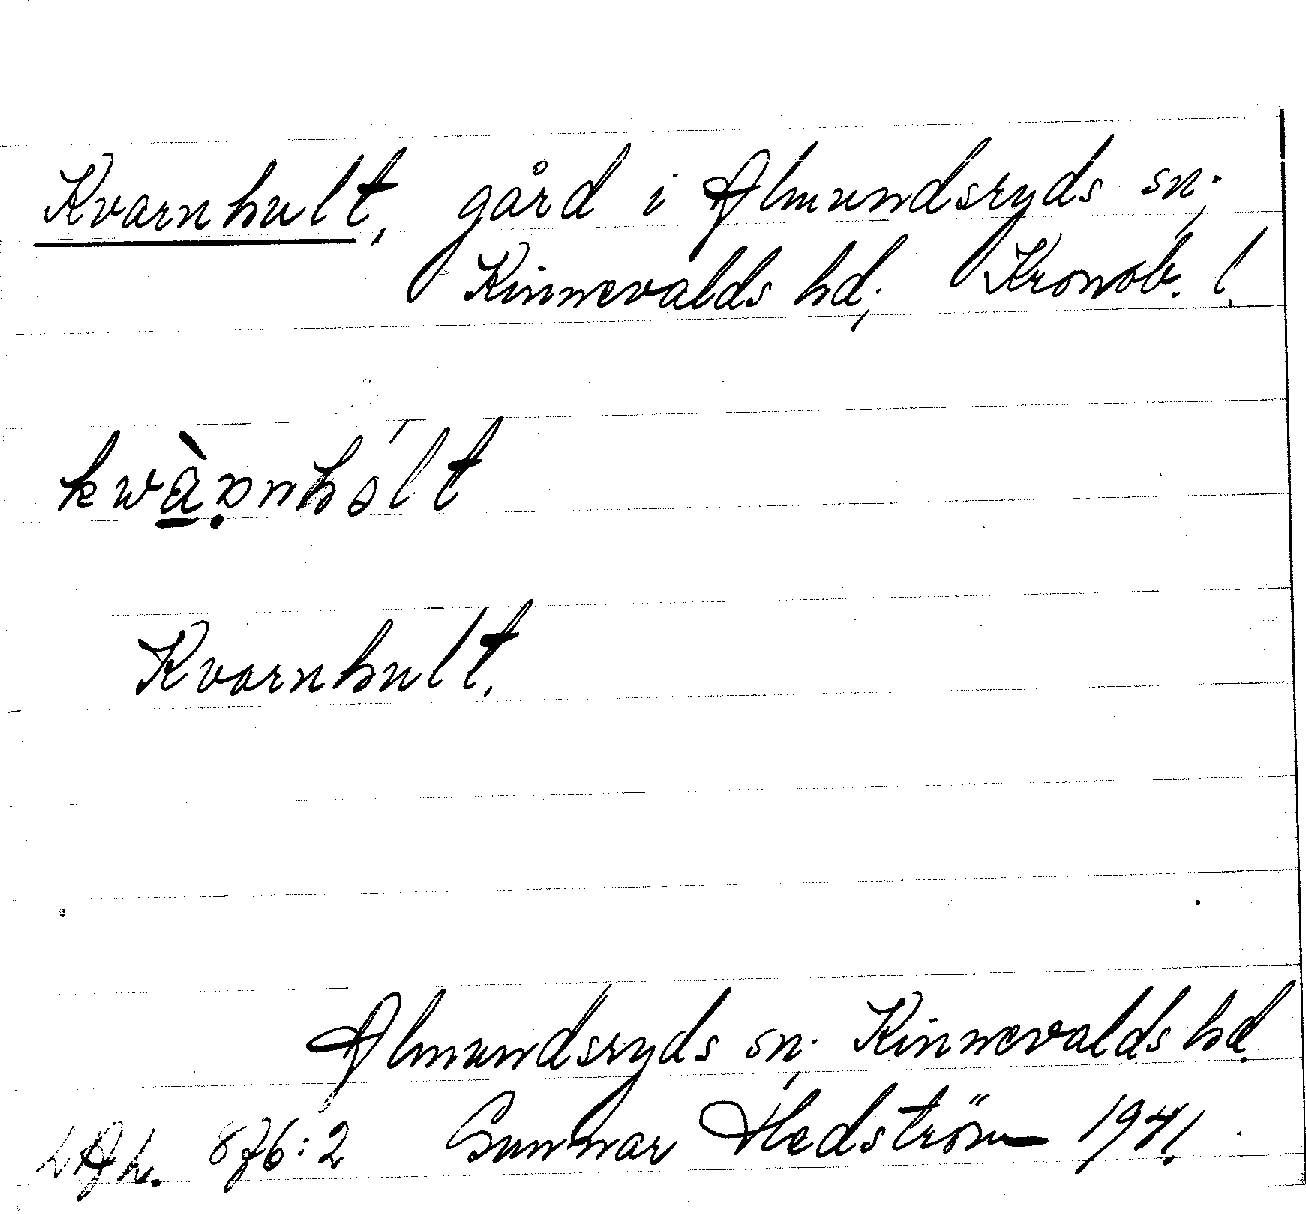 Kvarnhult, gård i Almundsryds sn;
Kinnevalds hd; Kronob. l.
Kvarnhult.
Almundsryds sn; Kinnevalds hd.
876:2 Gunnar Hedström 1941.